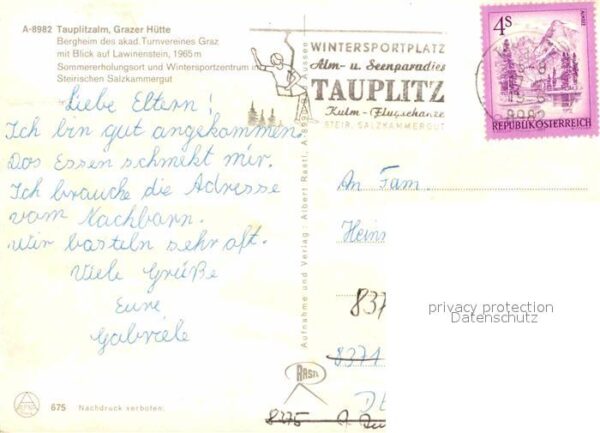 A-8982 Tauplitzalm, Grazer Hütte
Bergheim des akad. Turnvereines Graz
mit Blick auf Lawinenstein, 1965 m
Sommererholungsort und Wintersportzentrum im
Steirischen Salzkammergut
Liebe Eltern!
Ich bin gut angekommen.
Das Essen schmekt mir.
Ich brauche die Adresse
vom Nachbarn.
Wir basteln sehr oft.
Viele Grüße
Eure
Gabriele
675 Nachdruck verboten.
Aufnahme und Verlag: Albert Rastl, A-8990 Aussee
WINTERSPORTPLATZ
Alm- u. Seenparadies
TAUPLITZ
Kulm-Flugschanze
STEIR. SALZKAMMERGUT
4S
REPUBLIK ÖSTERREICH
8982
An Fam.
Hein
837
8371
RASTL
8375
privacy protection
Datenschutz